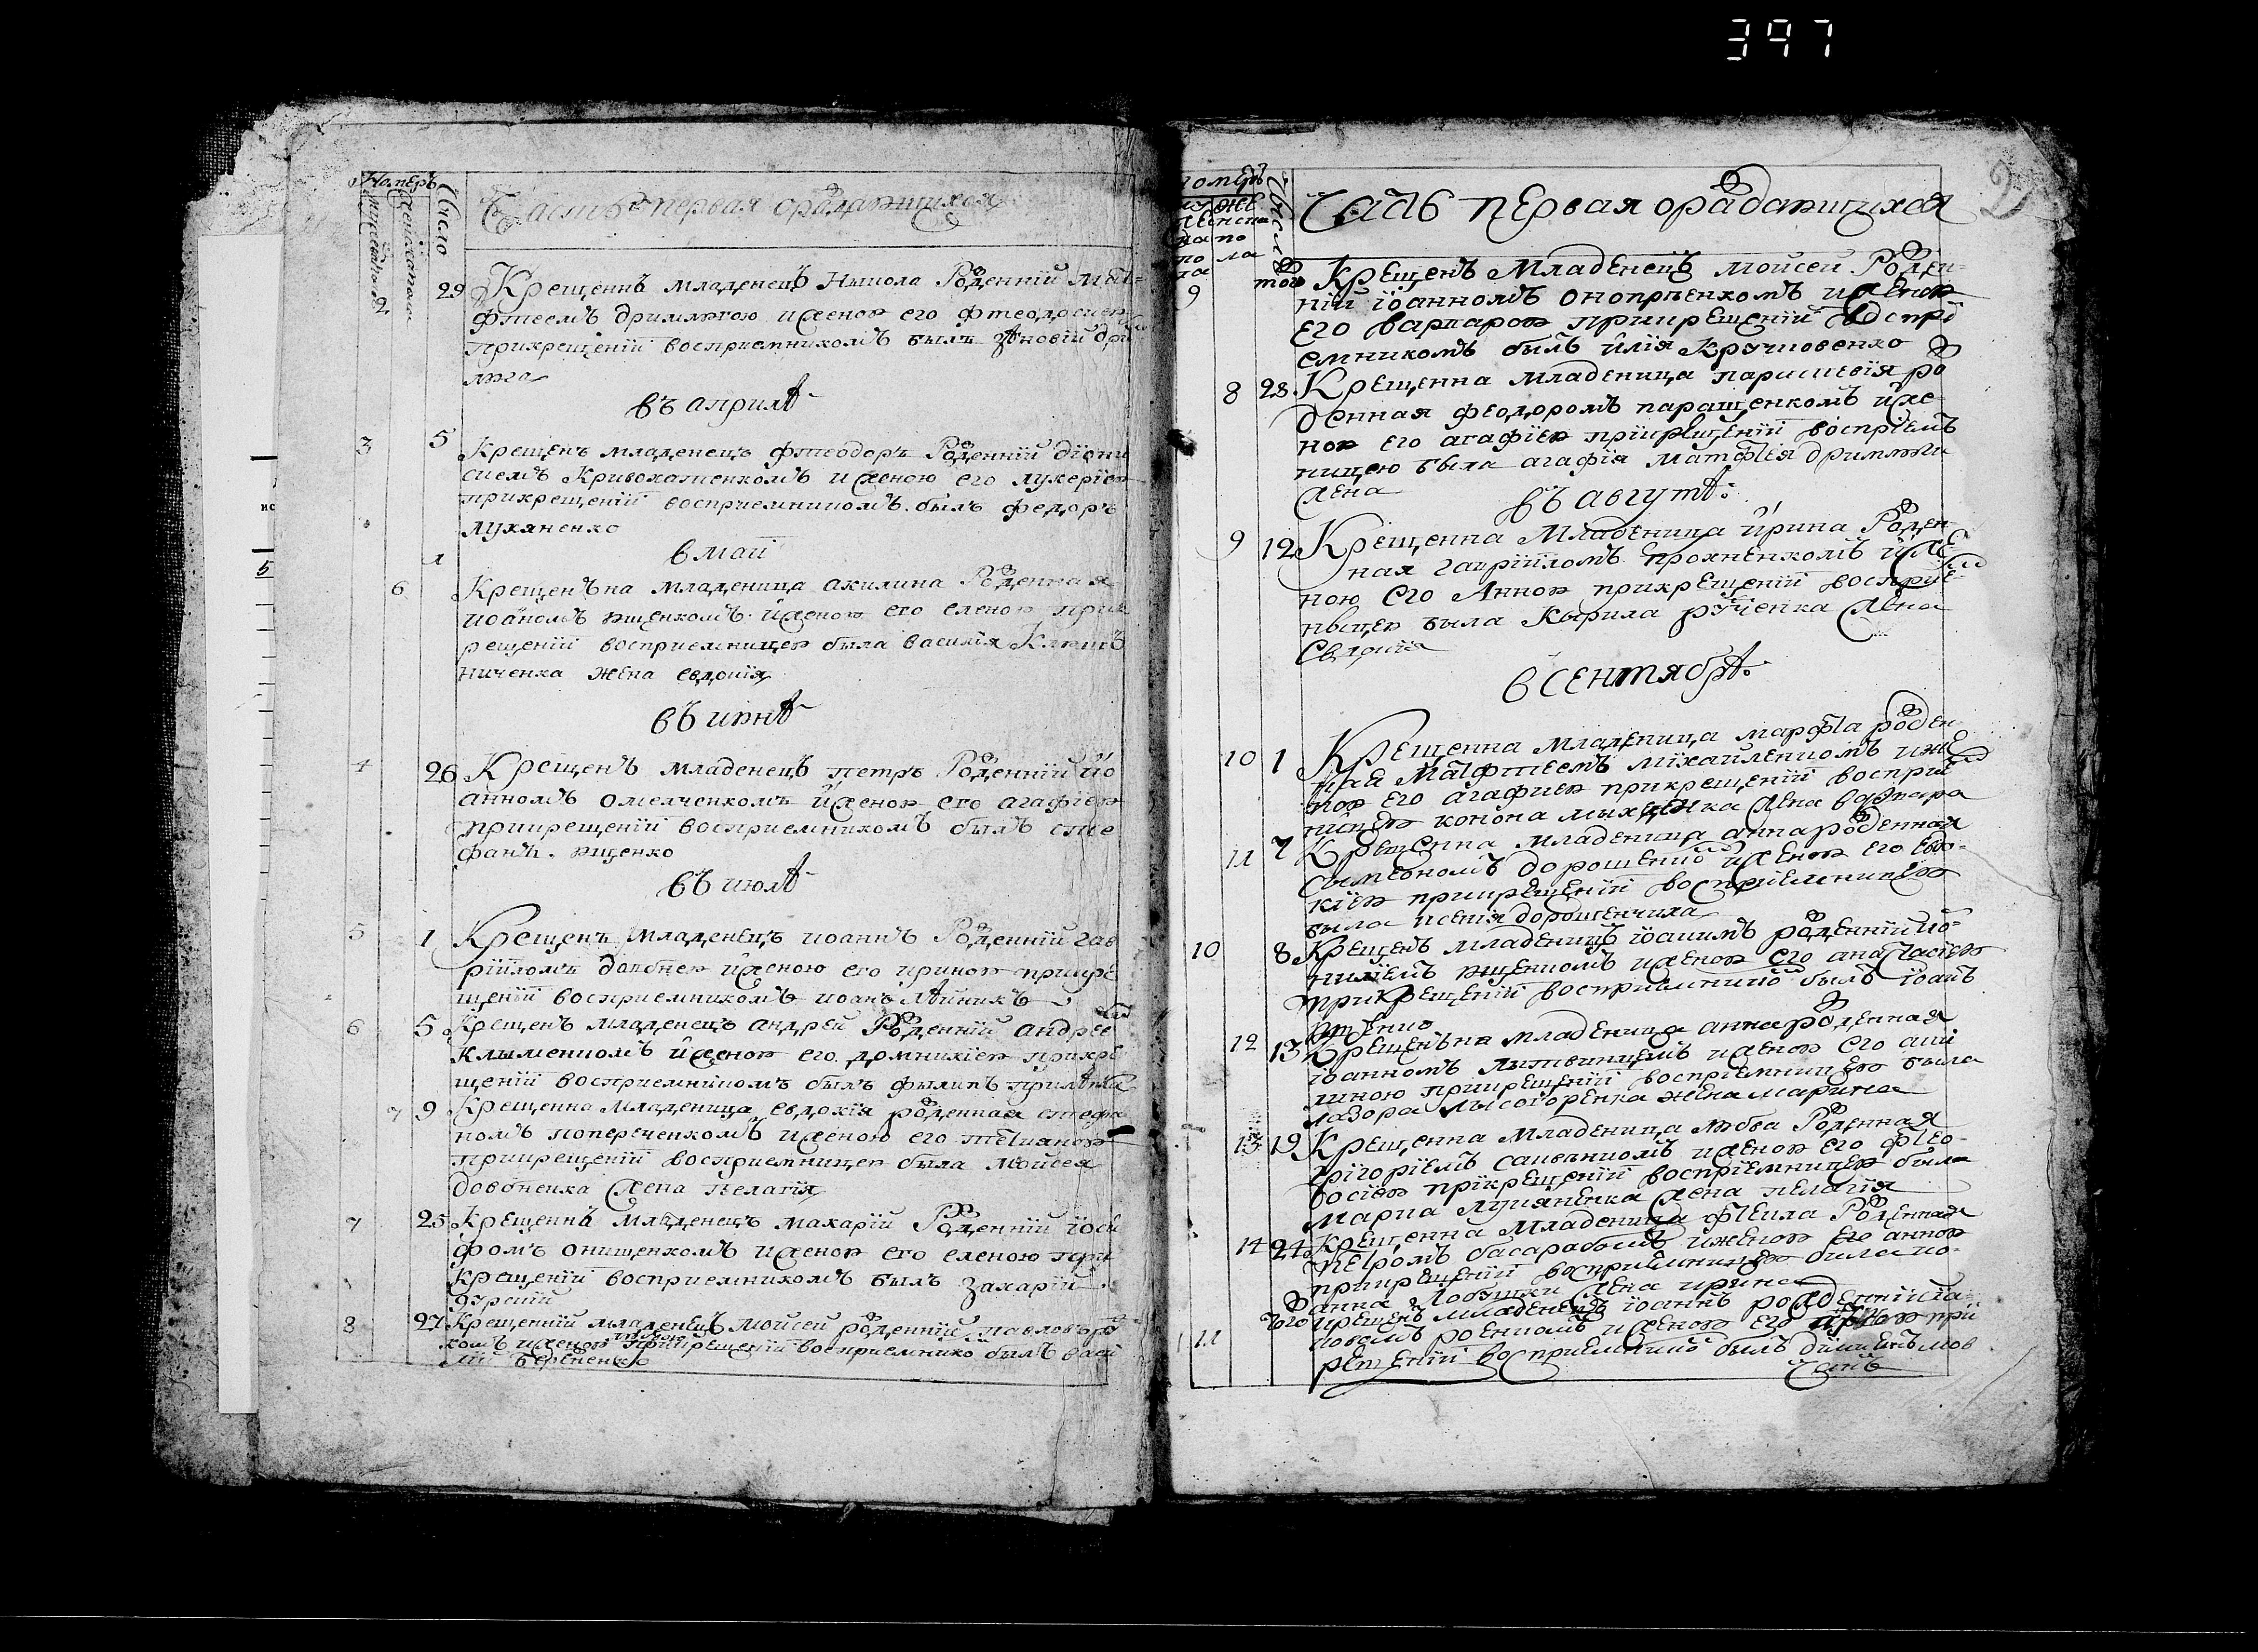 397
Номеръ
Число
Часть первая орождающихся
2
29 Крещеннъ младенецъ Никола Рожденнїй Мат-
фтеемъ дримлюгою и женою его фтеодосиею
прикрещенїи восприемникомъ былъ Зѣновїй дри
люга
въ априлѣ
3 5 Крещенъ младенецъ фтеодоръ Рожденнїй дїони
сиемъ Кривохатенкомъ и женою его лукерїею
прикрещенїи восприемникомъ былъ федоръ
лукяненко
в маїи
1
6 Крещенъна младеница акилина Рожденная
иоаномъ ющенкомъ и женою его еленою прик
рещенїи восприемницею была василїя
ниченка жена евдокия
въ июнѣ
4 26 Крещенъ младенецъ петръ Рожденнїй йо
анномъ омелченкомъ и женою его агафїею
прикрещенїи восприемникомъ былъ сте
фанъ ющенко
въ июлѣ
5 1 Крещенъ младенецъ иоаннъ Рожденнїй гав
рїиломъ довбнею и женою его ириною прикре
щенїи восприемникомъ иоанъ
6 5 Крещенъ младенецъ андрей Рожденнїй андрее
клыменкомъ и женою его домникїею прикре
щенїи восприемникомъ былъ филипъ
7 9 Крещенна младеница евдокїя рожденная стефа
номъ попереченкомъ и женою его тетианою
прикрещенїи восприемницею была мойсея
довбненка жена пелагїя
7 25 Крещеннъ младенецъ макарїй Рожденнїй їоси
фомъ онищенкомъ и женою его еленою при
крещенїи восприемникомъ былъ захарїй
8 27 Крещенїй младенецъ мойсей рожденнїй павломъ
комъ и женою прикрещенїи восприемнико былъ васи
лїй
номеръ
Число
Часть первая орождающихся
21
9 той Крещенъ младенецъ мойсей Рожден-
нїй їоанномъ оноприенкомъ и женою
его варварою прикрещенїи воспрї
емникомъ былъ илїя Кручковенко
8 28 Крещенна младеница парискевїя ро
жденная феодоромъ паращенкомъ и же-
ною его агафїею прикрещенїи воспрїем
ницею была агафїя матфїея дримлюги
жена
въ августѣ
9 12 Крещенна младеница ирина Рожден
ная гаврїиломъ прохненкомъ и же
ною его Анною прикрещенїи воспрїем
ницею была Кырила рученка жена
Евдокия
в сентябрѣ
10 1 Крещенна младеница марфта рожден
ная матфтеемъ михайленкомъ и же
ною его агафиею прикрещенїи воспри
ницею конона жена варвара
11 7 Крещенна младеница анна рожденная
сымеономъ дорошенко и женою его евдо-
кїею прикрещенїи восприемницею
была ксенїя дорошенчиха
10 8 Крещенъ младенецъ їоакимъ рожденнїй
ющенкомъ и женою его анастасїею
прикрещенїи восприемнико былъ їоанъ
12 13 Крещенъна младеница анна рожденная
їоанномъ литвинцемъ и женою его аки
линою прикрещенїи восприемницею была
лазора лысогоренка жена марина
13 19 Крещенна младеница любва Рожденная
грїгорїемъ и женою его фтео-
досїею прїкрещенїи воспрїемницею была
марка лукяненка жена пелагїя
14 24 Крещенна младеница фтекла Рожденная
петромъ басарабомъ и женою его анною
прикрещенїи восприемницею была ио-
анна жена ирина
11 того крещенъ младенецъ їоаннъ рожденнїй
и женою его при
крещенїи восприемнико былъ
Часть